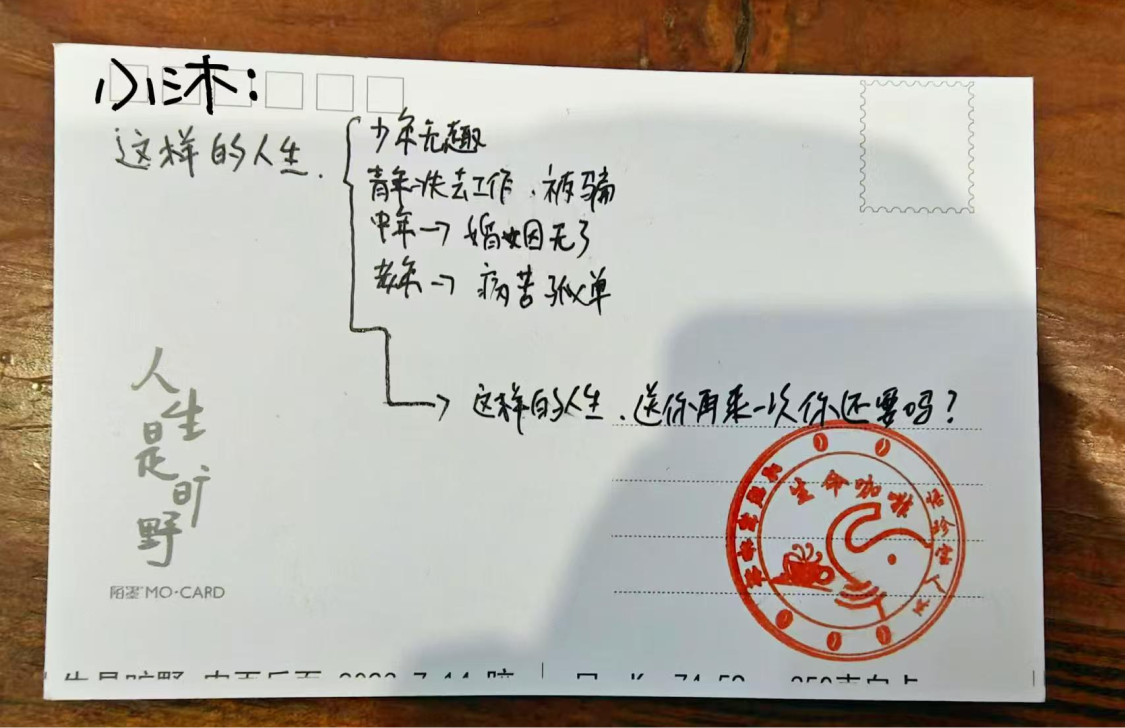 小沐：
这样的人生.
少年无趣
青年→失去工作.被骗
中年→婚姻因无了
老年→病苦孤单
→这样的人生.送你再来一次你还要吗？
人生是旷野
陌墨 MO·CARD
生命咖啡